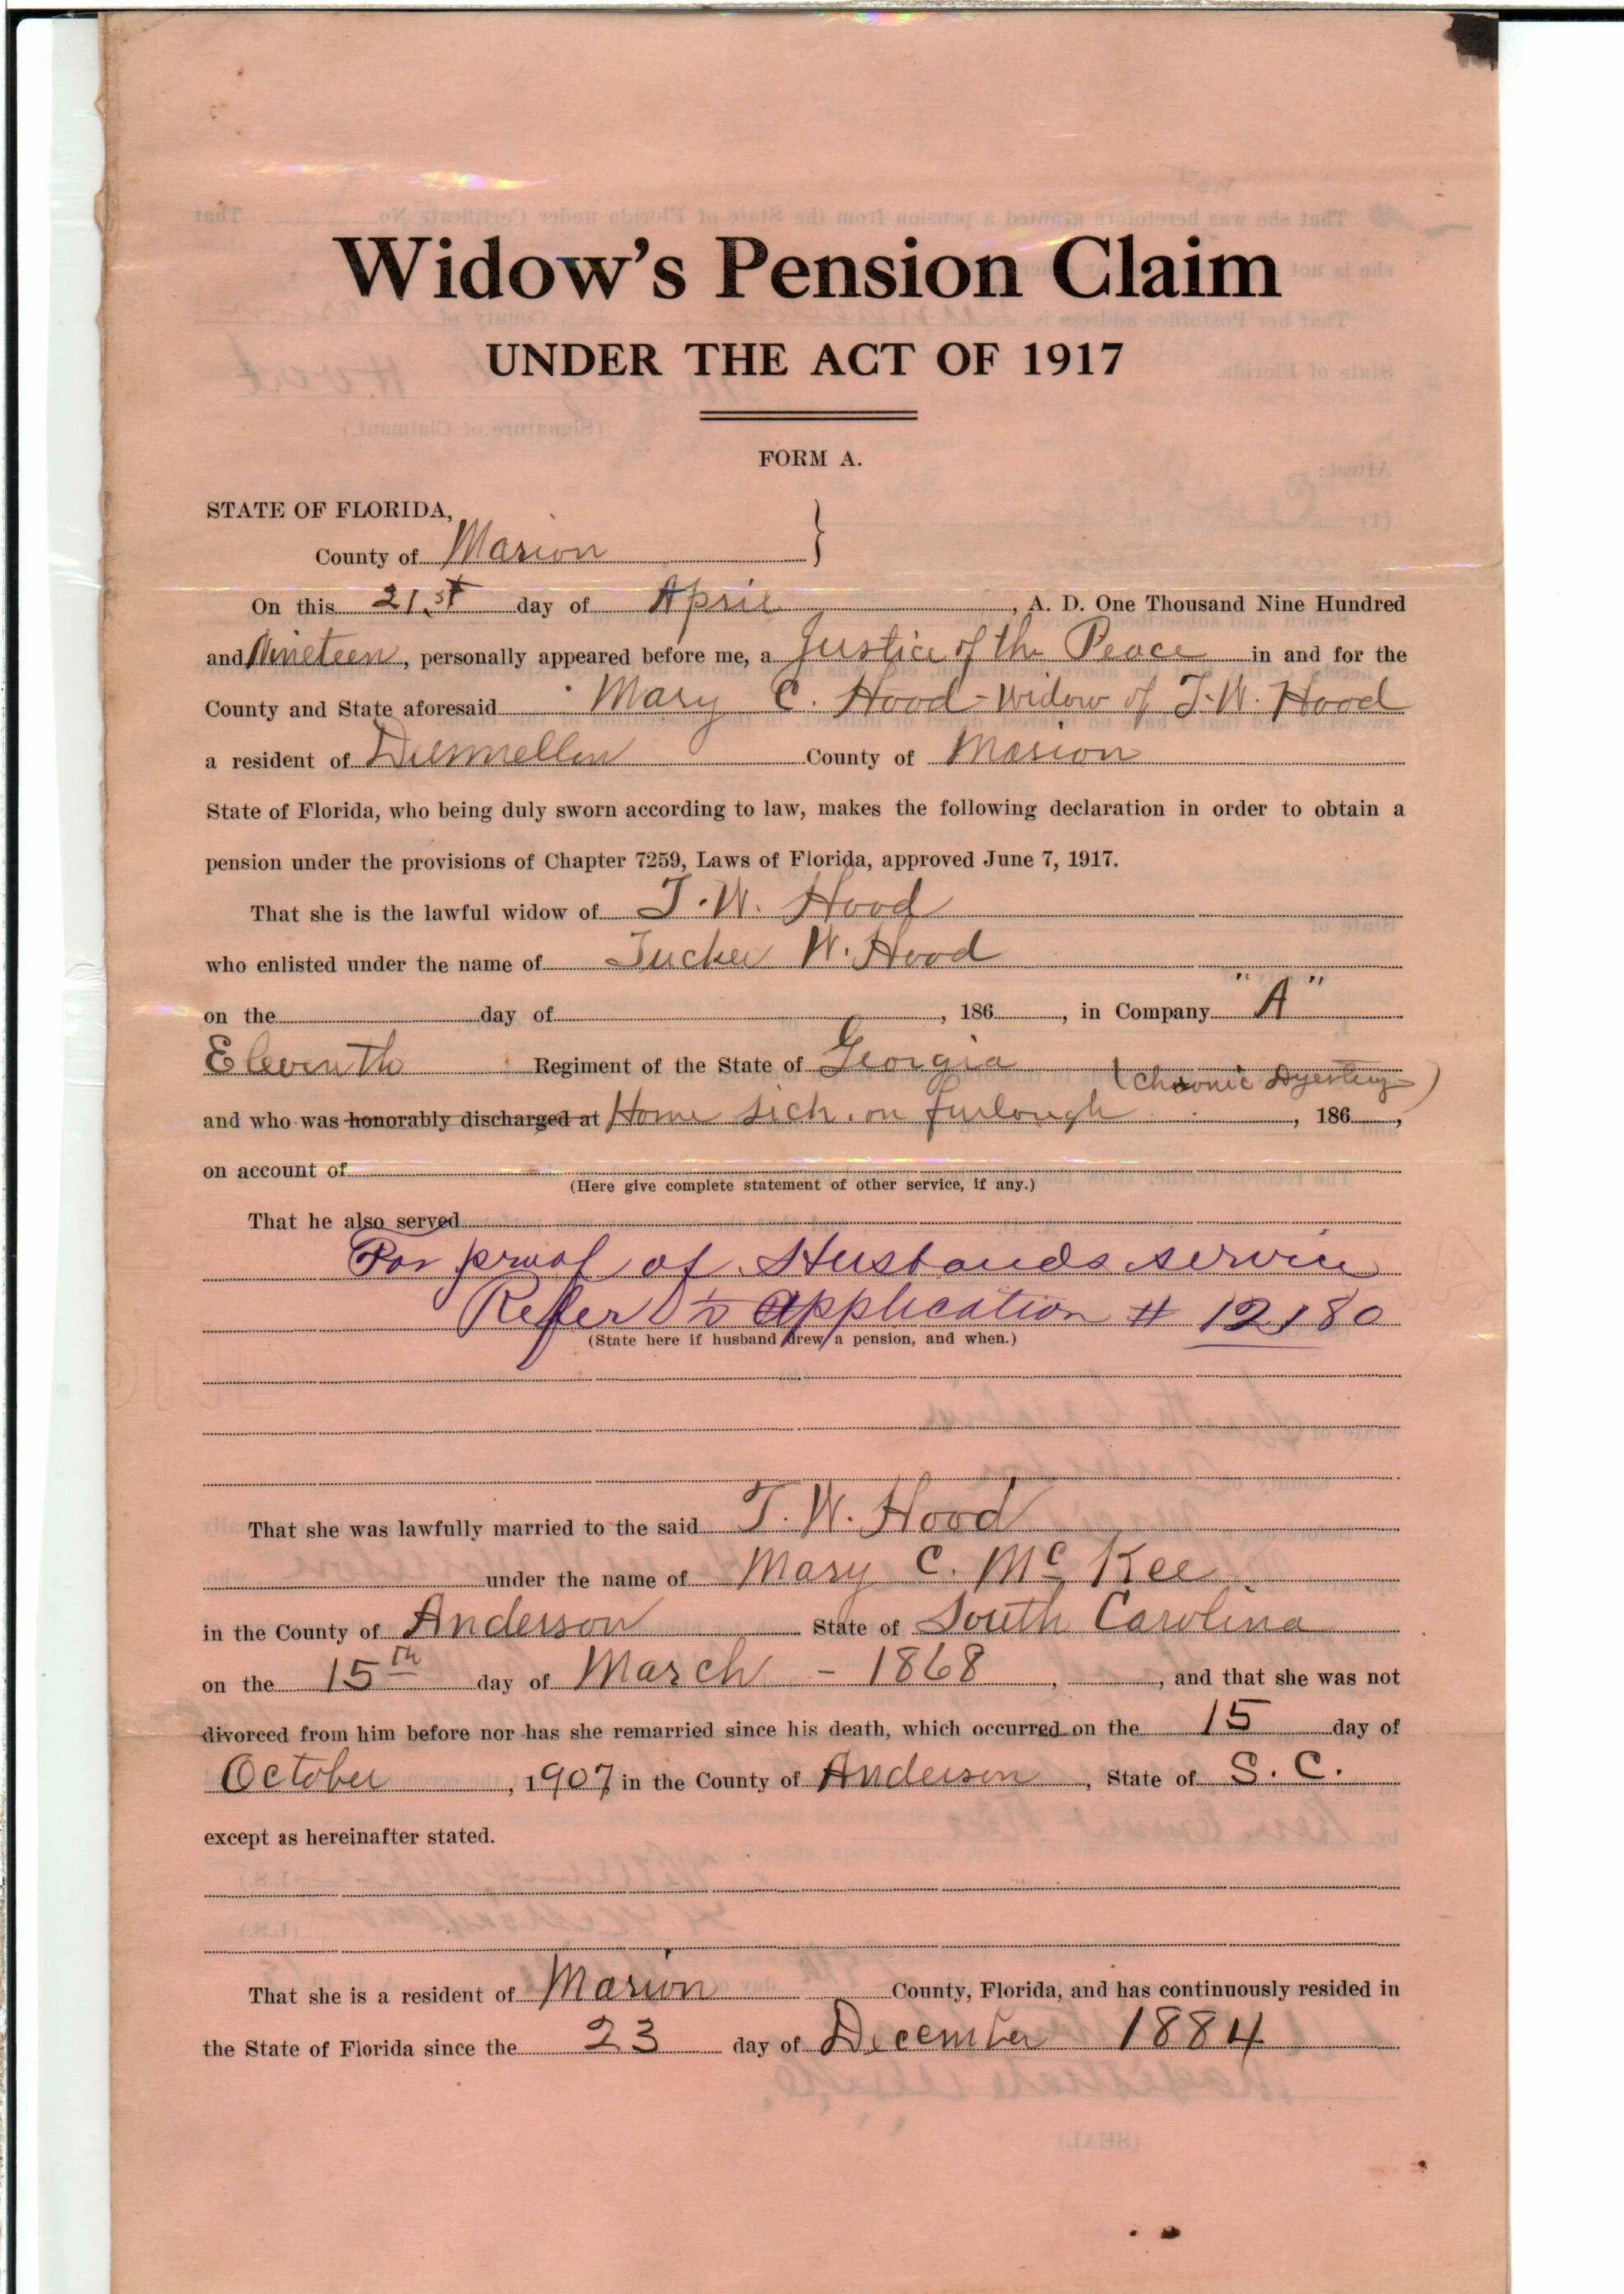 Widow's Pension Claim
UNDER THE ACT OF 1917
FORM A.
STATE OF FLORIDA,
County of Marion }
On this 21st day of April, A. D. One Thousand Nine Hundred
and Nineteen, personally appeared before me, a Justice of the Peace in and for the
County and State aforesaid Mary C. Hood - Widow of T. W. Hood
a resident of Dunnellon County of Marion
State of Florida, who being duly sworn according to law, makes the following declaration in order to obtain a
pension under the provisions of Chapter 7259, Laws of Florida, approved June 7, 1917.
That she is the lawful widow of T. W. Hood
who enlisted under the name of Tucker W. Hood
on the day of , 186 , in Company "A"
Eleventh Regiment of the State of Georgia
(Chronic Dysentery)
and who was honorably discharged at Home sick on furlough , 186 ,
on account of
(Here give complete statement of other service, if any.)
That he also served
For proof of Husbands service
Refer to Application # 12180
(State here if husband drew a pension, and when.)
That she was lawfully married to the said T. W. Hood
under the name of Mary C. McKee
in the County of Anderson State of South Carolina
on the 15th day of March - 1868 , , and that she was not
divorced from him before nor has she remarried since his death, which occurred on the 15 day of
October , 1907 in the County of Anderson , State of S. C.
except as hereinafter stated.
That she is a resident of Marion County, Florida, and has continuously resided in
the State of Florida since the 23 day of December 1884